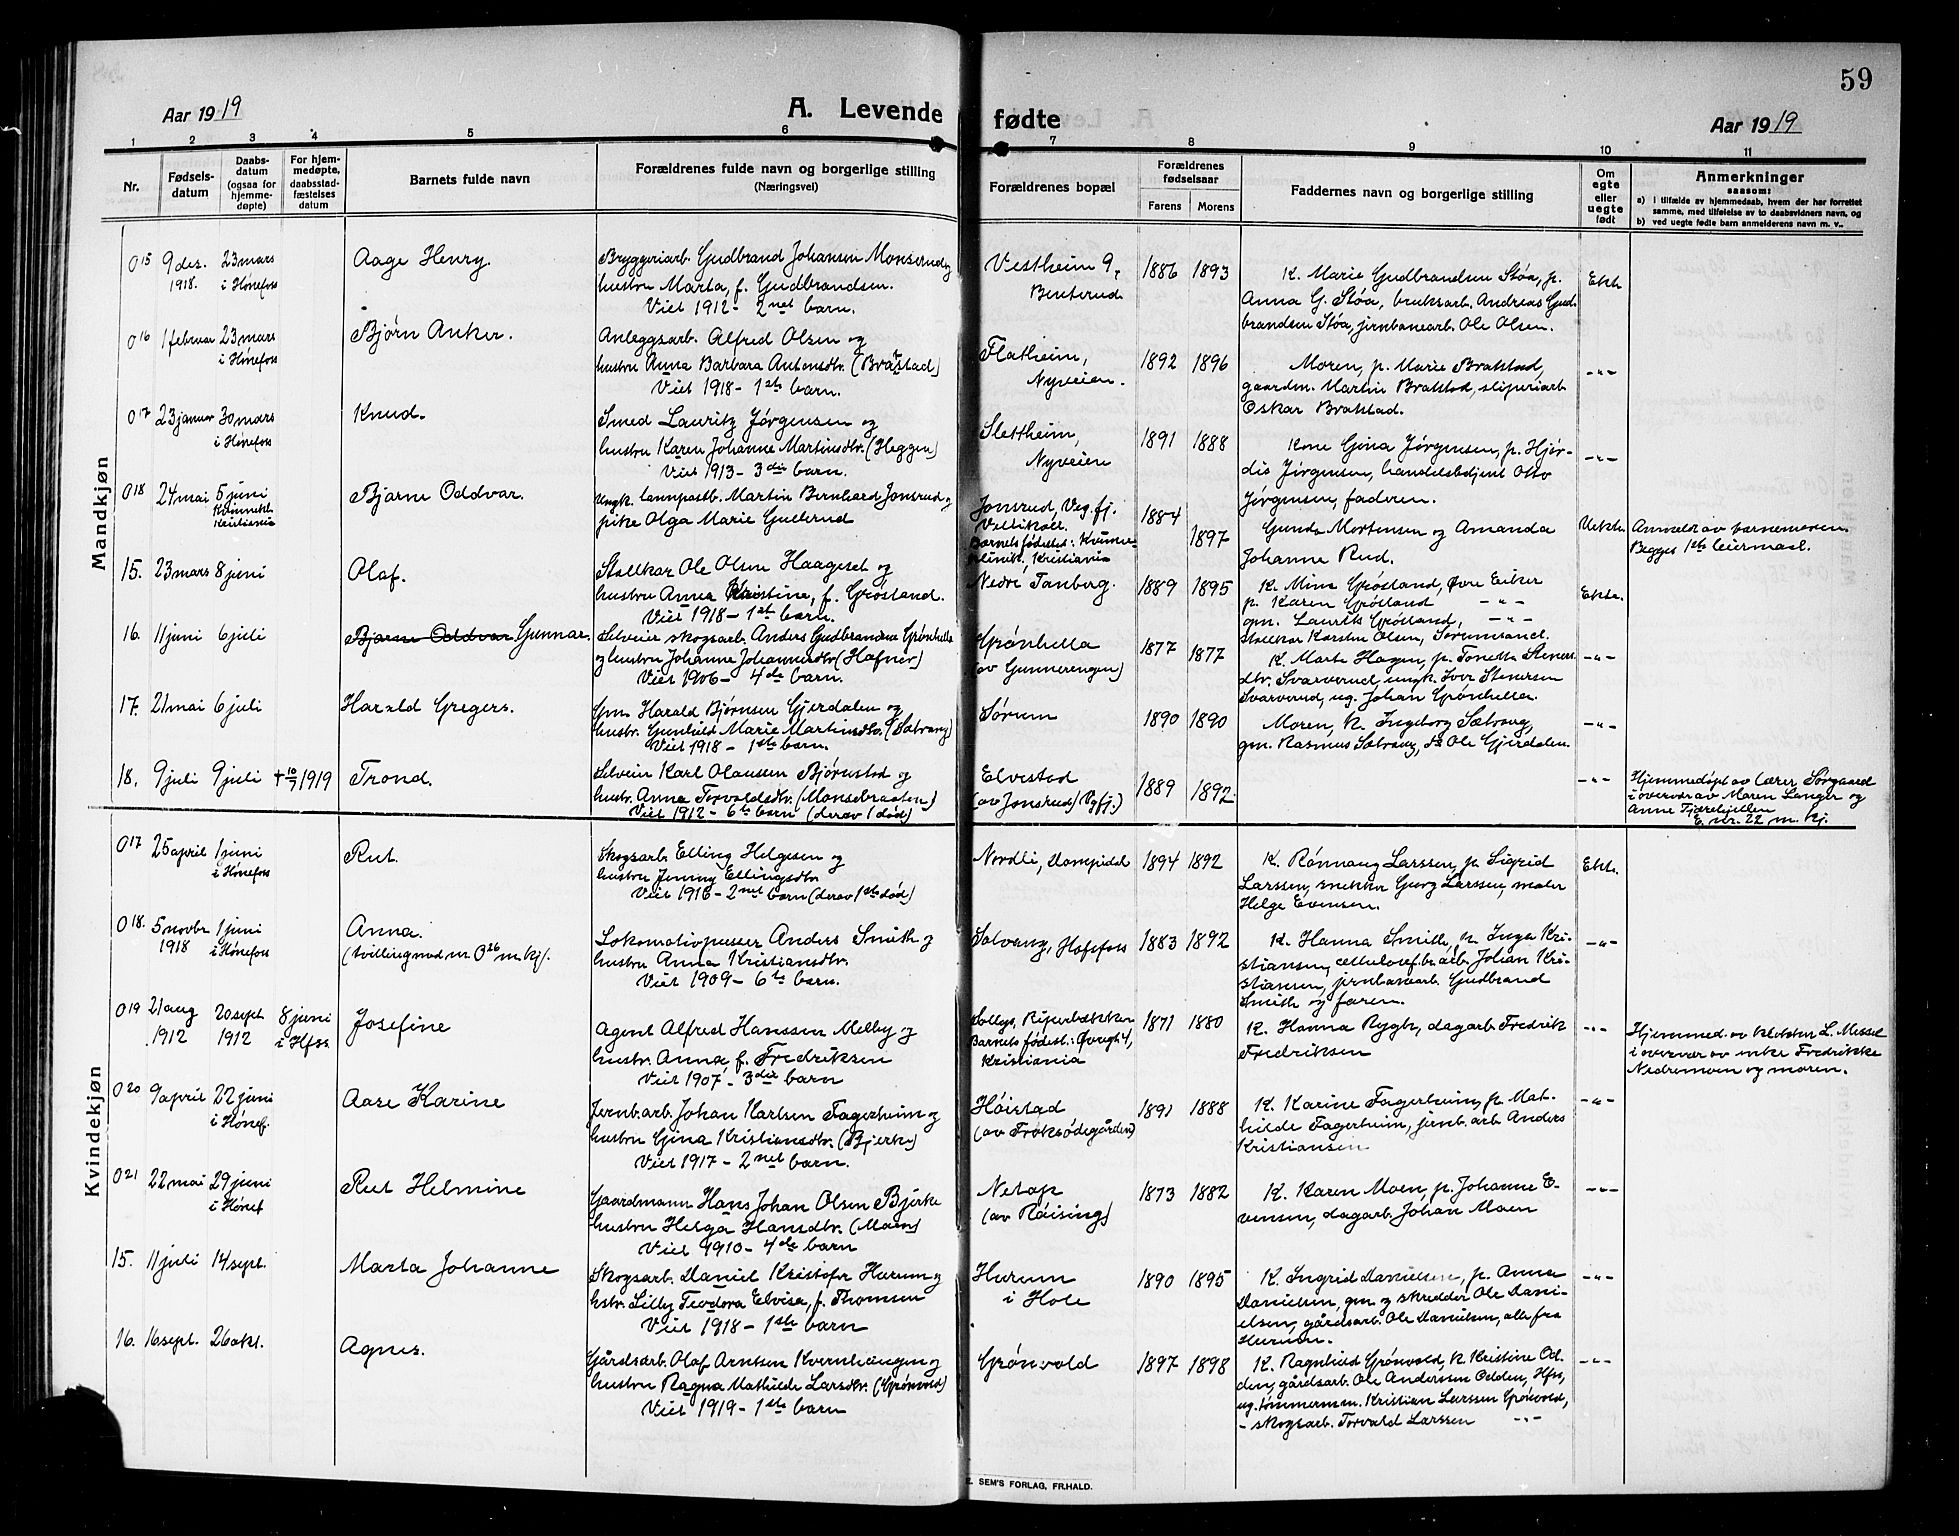 59
Aar 1919
A. Levende fødte
Aar 1919
1 2 3 4 5 6 7 8 9 10 11
Nr.
Fødsels-
datum
Daabs-
datum
(ogsaa for
hjemme-
døpte)
For hjem-
medøpte,
daabsstad-
fæstelses
datum
Barnets fulde navn
Forældrenes fulde navn og borgerlige stilling
(Næringsvei)
Forældrenes bopæl
Forældrenes
fødselsaar
Farens Morens
Faddernes navn og borgerlige stilling
Om
egte
eller
uegte
født
Anmerkninger
saasom:
a) i tilfælde av hjemmedaab, hvem der har forrettet
samme, med tilføielse av to daabsvidners navn, og
b) ved uegte fødte barn anmelderens navn m. v..
Mandkjøn
015 9 des. 1918. 23 mars i Hønefoss
Aage Henry.
Bryggeriarb. Gudbrand Johansen Monserud og
hustru Marta, f. Gudbrandsen.
Viet 1912 - 2net barn.
Vestheim 9,
Benterud.
1886 1893
K. Marie Gudbrandsen Støa, p.
Anna G. Støa, bruksarb. Andreas Gud-
brandsen Støa, jernbanearb. Ole Olsen.
Ekte.
016 1 februar 23 mars i Hønefoss
Bjørn Anker.
Anleggsarb. Alfred Olsen og
hustru Anna Barbara Antonsdtr. (Bråtstad)
Viet 1918 - 1ste barn.
Flatheim,
Nyveien.
1892 1896
Moren, p. Marie Bratstad,
gaardm. Martin Bratstad, sliperiarb.
Oskar Bratstad.
-"-
017 23 januar 30 mars i Hønefoss
Knud.
Smed Lauritz Jørgensen og
hustru Karen Johanne Martinsdtr. (Heggen)
Viet 1913 - 3die barn.
Slettheim,
Nyveien
1891 1888
Kone Gina Jørgensen, p. Hjør-
dis Jørgensen, handelsbetjent Otto
Jørgensen, faderen.
-"-
018 24 mai 5 juni Kristiania
Bjarne Oddvar.
Ungk. lannpostb. Martin Bernhard Jonsrud og
pike Olga Marie Gulerud
Jonsrud, Veg.fj.
Barnets fødested: Kvinne-
klinik. Kristiania
1884 1897
Gunda Mortensen og Amanda
Johanne Rud.
Uekte.
Anmeldt av barnemoren.
Begges 1ste leiermaal.
15. 23 mars 8 juni
Olaf.
Stallkar Ole Olsen Haagset og
hustru Anna Kristine, f. Grøsland.
Viet 1918 - 1st barn.
Nedre Tanberg.
1889 1895
K. Mina Grøsland, Øvre Eiker
p. Karen Grøsland -"-
gm. Laurits Grøsland, -"-
stallkar Karsten Olsen, Sørumsand.
Ekte.
16. 11 juni 6 juli
Bjarne Oddvar. Gunnar.
Selveier skogsarb. Anders Gudbrandsen Grønhella
og hustru Johanne Johannesdtr (Hafnor)
Viet 1906 - 4de barn.
Grønhella
(av Gunnerengen)
1877 1877
K. Marte Hagen, p. Tonetta Steners-
dtr. Svarverud, ungk. Iver Stenersen
Svarverud, ug. Johan Grønhella.
-"-
17. 21 mai 6 juli
Harald Gregers.
Gm. Harald Bjørnsen Gjerdalen og
hustr. Gunhild Marie Martinsdtr. (Sætrang)
Viet 1918 - 1ste barn.
Sørum
1890 1890
Moren, k. Ingeborg Sætrang,
gm. Rasmus Sætrang, ds Ole Gjerdalen.
-"-
18. 9 juli 9 juli + 10/7 1919
Trond.
Selveier Karl Olausen Bjørnstad og
hustr. Anna Torvaldsdtr. (Monsebraaten)
Viet 1912 - 6te barn (derav 1 død)
Elvestad
(av Jonsrud) Vgfj.)
1889 1892.
-"-
Hjemmedøpt av lærer Sørgaard
i overvær av Maren Langer og
Anne Tjærebjellen
E. nr. 22 m. kj.
Kvindekjøn
017 25 april 1 juni i Hønefoss
Rut.
Skogsarb. Elling Helgesen og
hustru Jenny Ellingsdtr.
Viet 1916 - 2net barn (derav 1ste død)
Nordli,
1894 1892
K. Rønnaug Larssen, p. Sigrid
Larssen, snekker Georg Larssen, maler
Helge Evensen.
Ekte.
018. 5 novbr 1918 1 juni i Hønefoss
Anna.
(tvilling med nr. 026 m. kj.
Lokomotivpusser Anders Smith og
hustru Anna Kristiansdtr.
Viet 1909 - 6te barn.
Solvang, Hofsfoss
1883 1892
K. Hanna Smith, k. Inga Kri-
stiansen, cellulosef.br.arb. Johan Kri-
stiansen, jernbanearb. Gudbrand
Smith og faren.
-"-
019 21 aug 1912 20 sept 1912 8 juni i Hfss.
Josefine
Agent Alfred Hanssen Melby og
hustru Anna, f. Fredriksen
Viet 1907 - 3die barn
Solbg, Riperbakken
Barnets fødest.: Øvregt. 4,
Kristiania
1871 1880
K. Hanna Rygh, dagarb. Fredrik
Fredriksen
-"-
Hjemmed. av klokker L. Messel
i overvær av enke Fredrikke
Nedremoen og moren.
020 9 april 22 juni i Hønef.
Aase Karine
Jernb.arb. Johan Karlsen Fagerheim og
hustru Gina Kristiansdtr. (Bjerke)
Viet 1917 - 2net barn.
Høistad
(av Frøksødegården)
1891 1888
K. Karine Fagerheim, p. Mat-
hilde Fagerheim, jernb. arb. Anders
Kristiansen
-"-
021 22 mai 29 juni i Hønef
Rut Helmine
Gaardmann Hans Johan Olsen Bjerke
hustru Helga Hansdtr. (Moen)
Viet 1910 - 4de barn
Netop
(av Røising)
1873 1882
K. Karen Moen, p. Johanne E-
vensen, dagarb. Johan Moen
-"-
15. 11 juli 14 sept.
Marta Johanne
Skogsarb. Daniel Kristofer Hurum og
hstr. Lilly Teodora Elvisa, f. Thomsen
Viet 1918 - 1ste barn
Hurum
i Hole
1890 1895
K. Ingrid Danielsen, p. Anna
Danielsen, gm. og skredder Ole Dani-
elsen, gårdsarb. Ole Danielsen, alle fra
Hurum.
-"-
16. 16 sept. 26 okt.
Agnes.
Gårdsarb. Olaf Arntsen Kvernhaugen og
hustru Ragna Mathilde Larsdtr. (Grønvold)
Viet 1919 - 1ste barn
Grønvold
1897 1898
K. Ragnhild Grønvold, k. Kristine Od-
den, gårdsarb. Ole Anderssen Odden, Hfss,
ug. tømmerm. Kristian Larssen Grønvold,
- skogsarb. Torvald Larssen -"-
-"-
E. SEM'S FORLAG, FR.HALD.